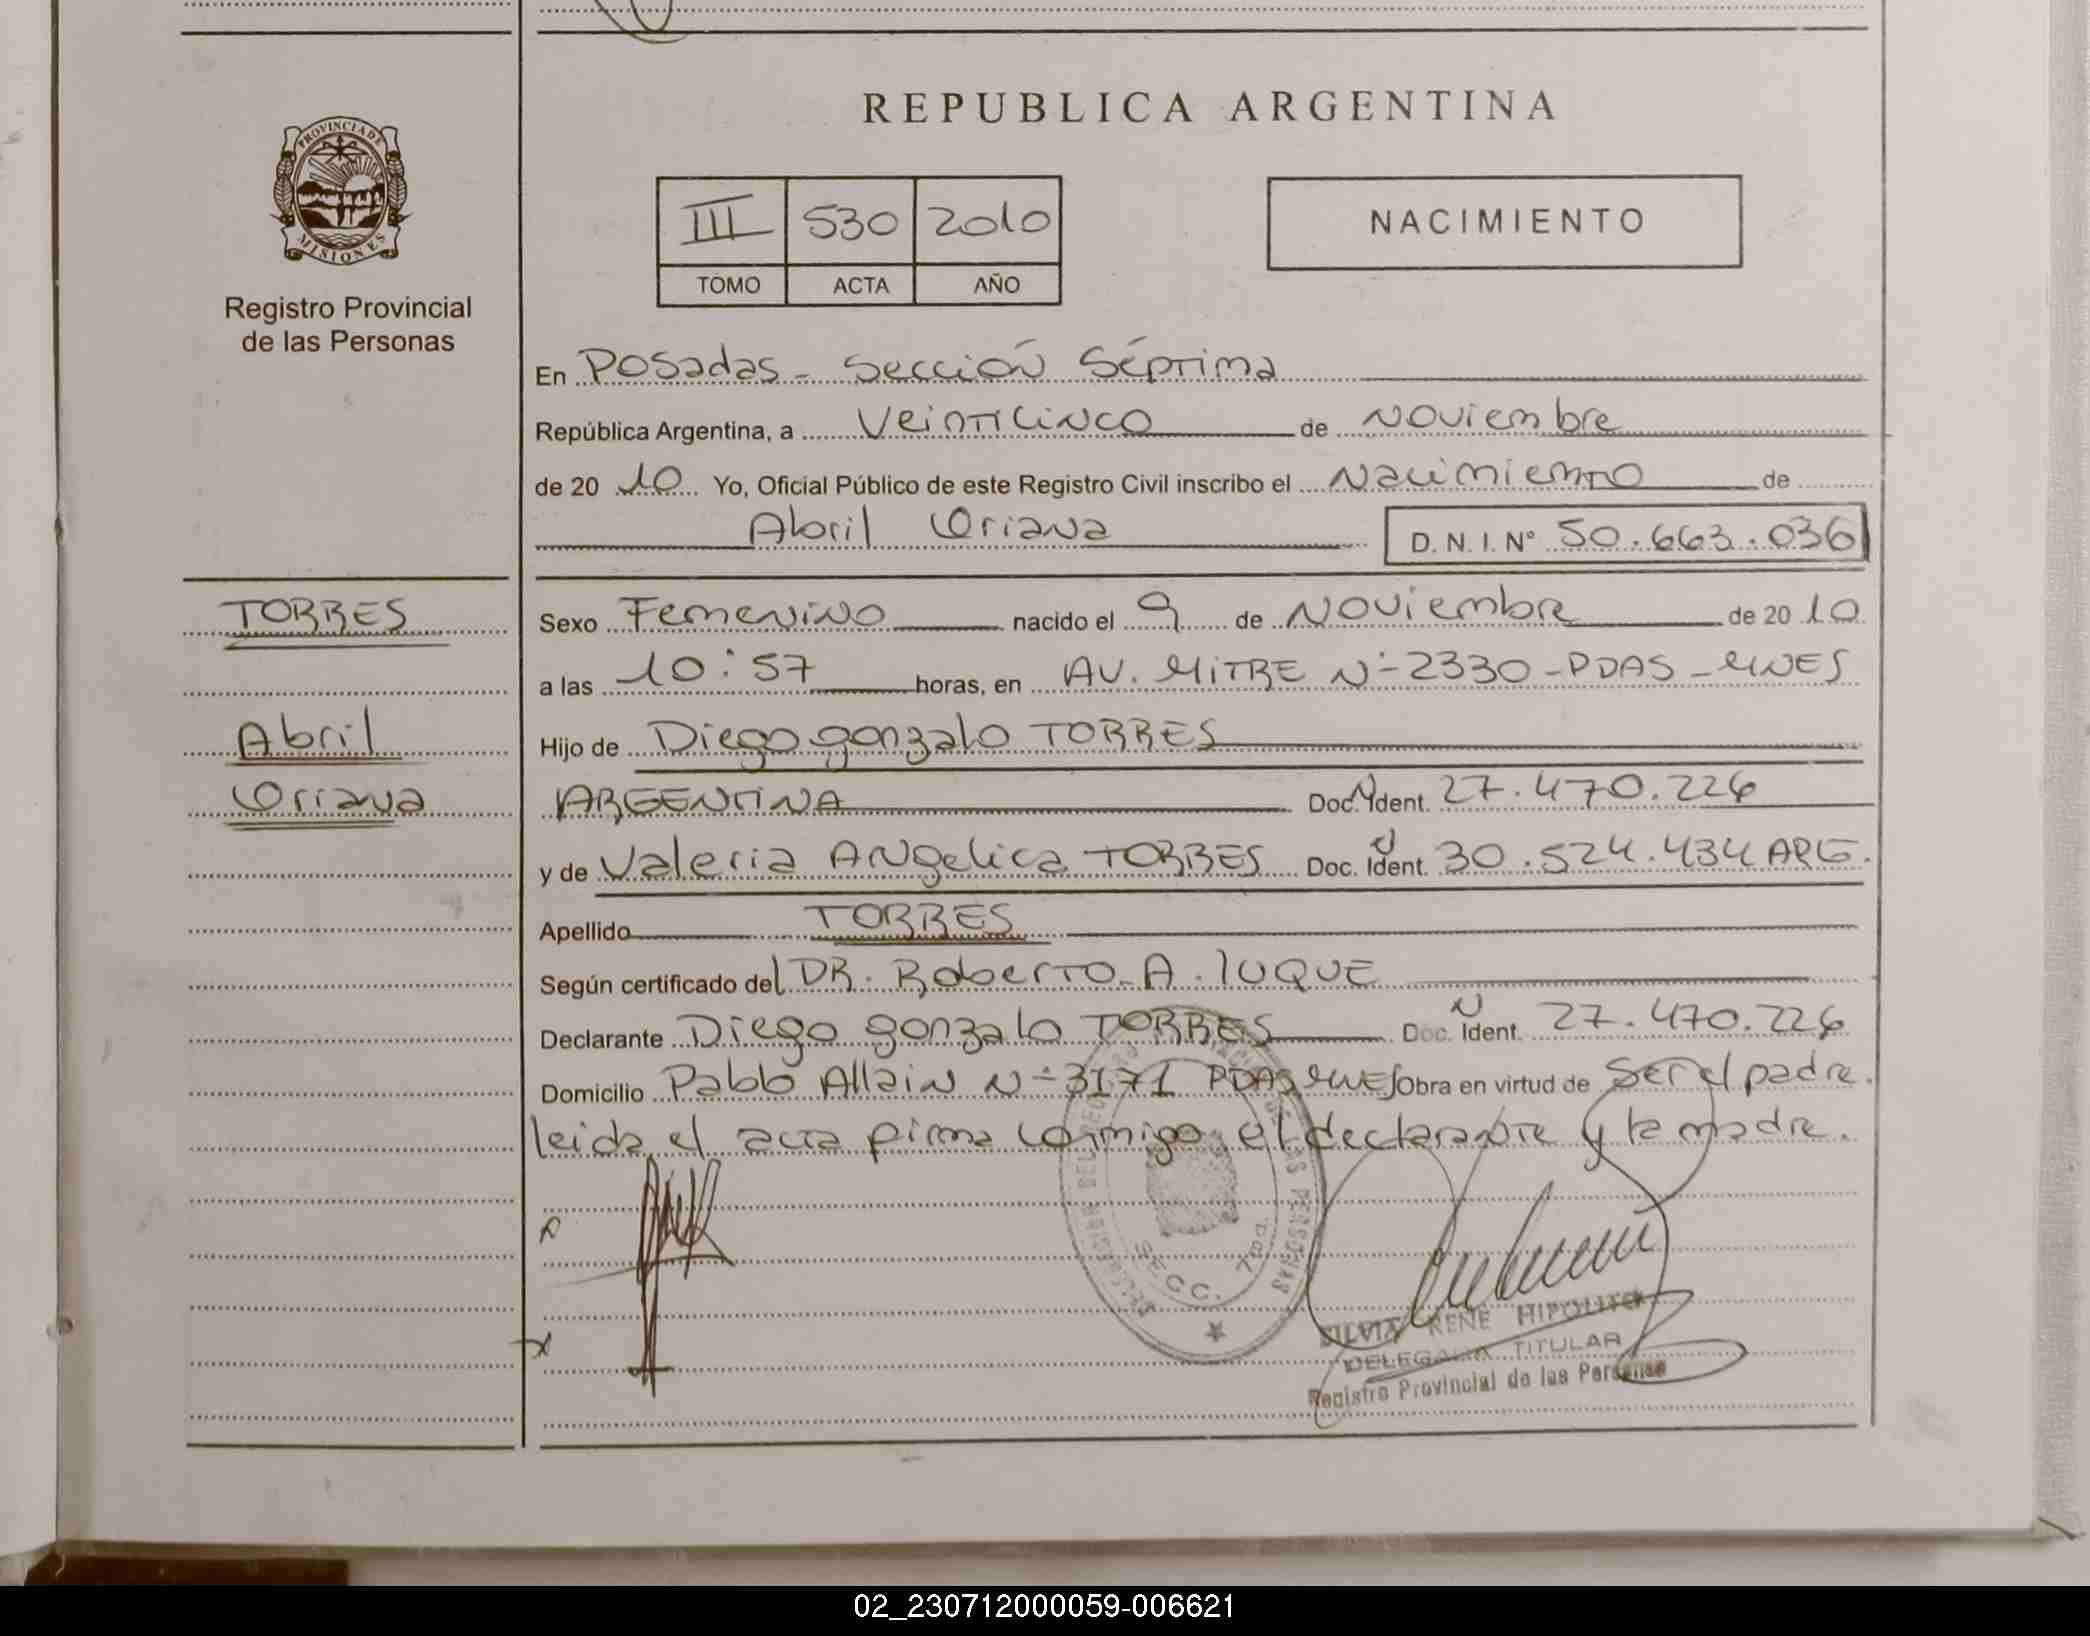 PROVINCIA DE
MISIONES
Registro Provincial
de las Personas
REPUBLICA ARGENTINA
III 530 2010
TOMO ACTA AÑO
NACIMIENTO
En Posadas - Sección Séptima
República Argentina, a Veinticinco de Noviembre
de 20 10 Yo, Oficial Público de este Registro Civil inscribo el Nacimiento de
Abril Oriana D.N.I. Nº 50.663.036
TORRES
Abril
Oriana
Sexo Femenino nacido el 9 de Noviembre de 20 10
a las 10:57 horas, en AV. MITRE Nº 2330 - PDAS - MNES
Hijo de Diego gonzalo TORRES
ARGENTINA Doc. Ident. 27.470.226
y de Valeria Angelica TORRES Doc. Ident. 30.524.434 ARG.
Apellido TORRES
Según certificado del DR. Roberto A. luQUE
Declarante Diego gonzalo TORRES Doc. Ident. 27.470.226
Domicilio Pablo Allain Nº 3171 PDAS MNES Obra en virtud de Ser el padre.
leida el acta firma conmigo el declarante y la madre.
SECC. 7ma.
SILVIA RENE HIPOLITO
DELEGADA TITULAR
Registro Provincial de las Personas
02_230712000059-006621